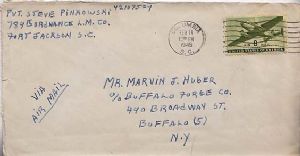 PVT. STEVE PINKOWSKI
ORDNANCE L.M. CO.
FORT JACKSON S.C.
COLUMBIA
FEB 18
1945
S.C.
8
UNITED STATES OF AMERICA
VIA
AIR MAIL
MR. MARVIN J. HUBER
C/O BUFFALO FORGE CO.
490 BROADWAY ST.
BUFFALO (5)
N.Y